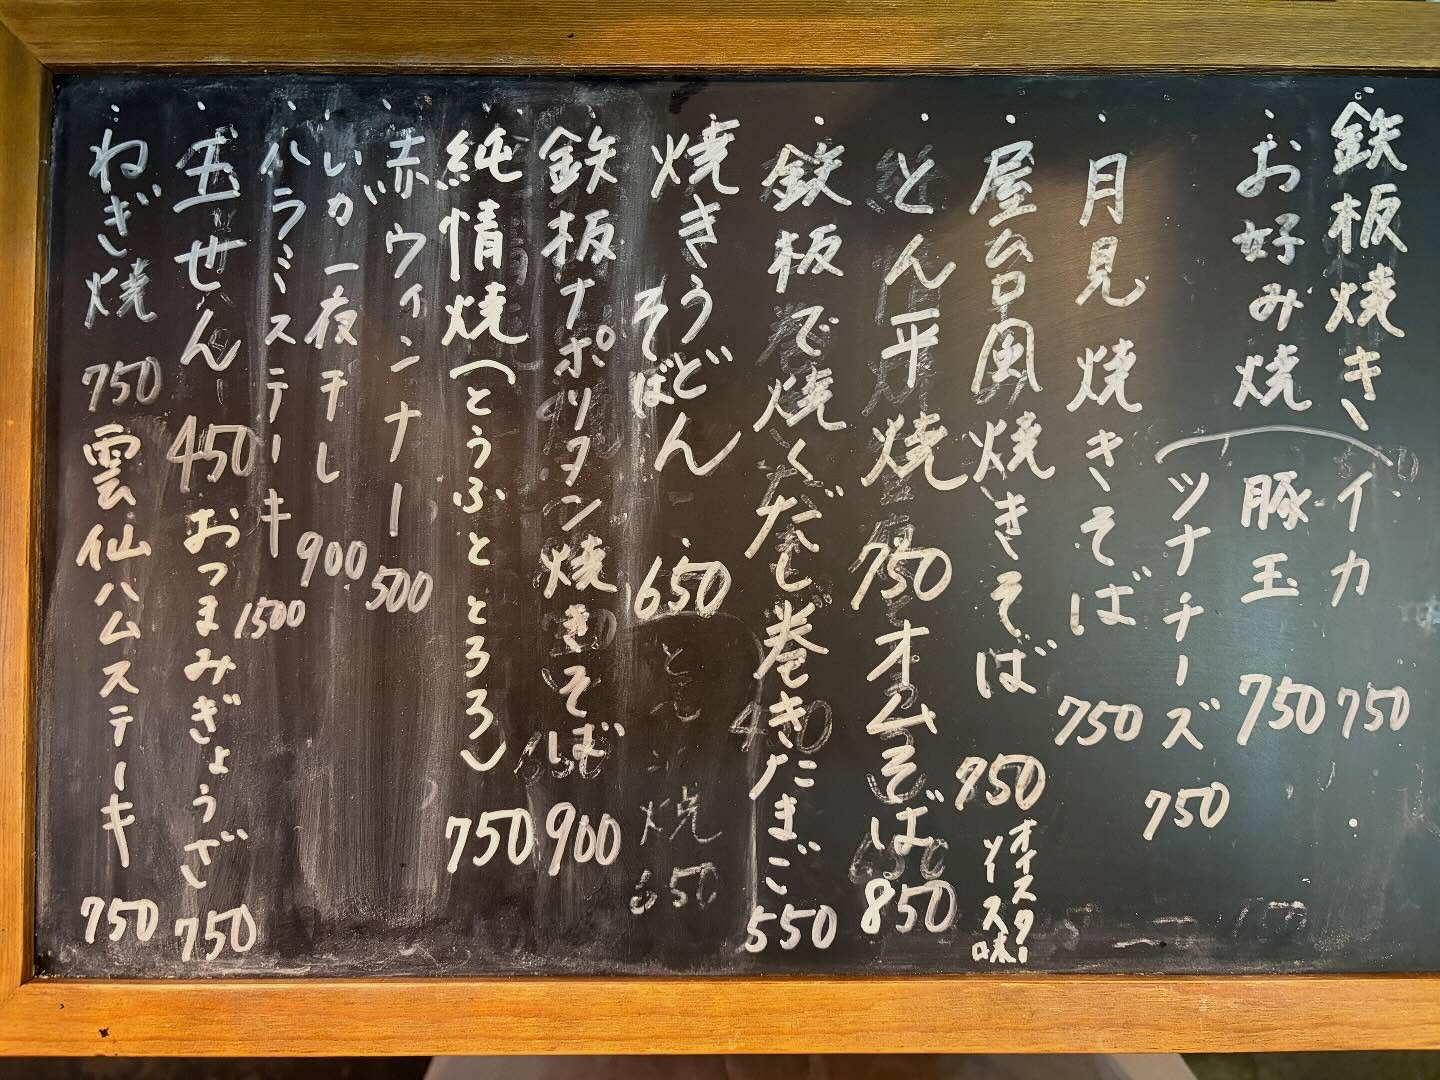 鉄板焼き
お好み焼
イカ 750
豚玉 750
ツナチーズ 750
月見焼きそば 750
屋台風焼きそば 750
オイスターソース味
とん平焼 750
オムそば 850
鉄板で焼くだし巻きたまご 550
焼きうどん
そば 650
鉄板ナポリタン焼きそば 900
純情焼(とうふととろろ) 750
赤ウィンナー 500
いか一夜干し 900
ハラミステーキ 1500
玉せん 450
おつまみぎょうざ 750
ねぎ焼 750
雲仙ハムステーキ 750